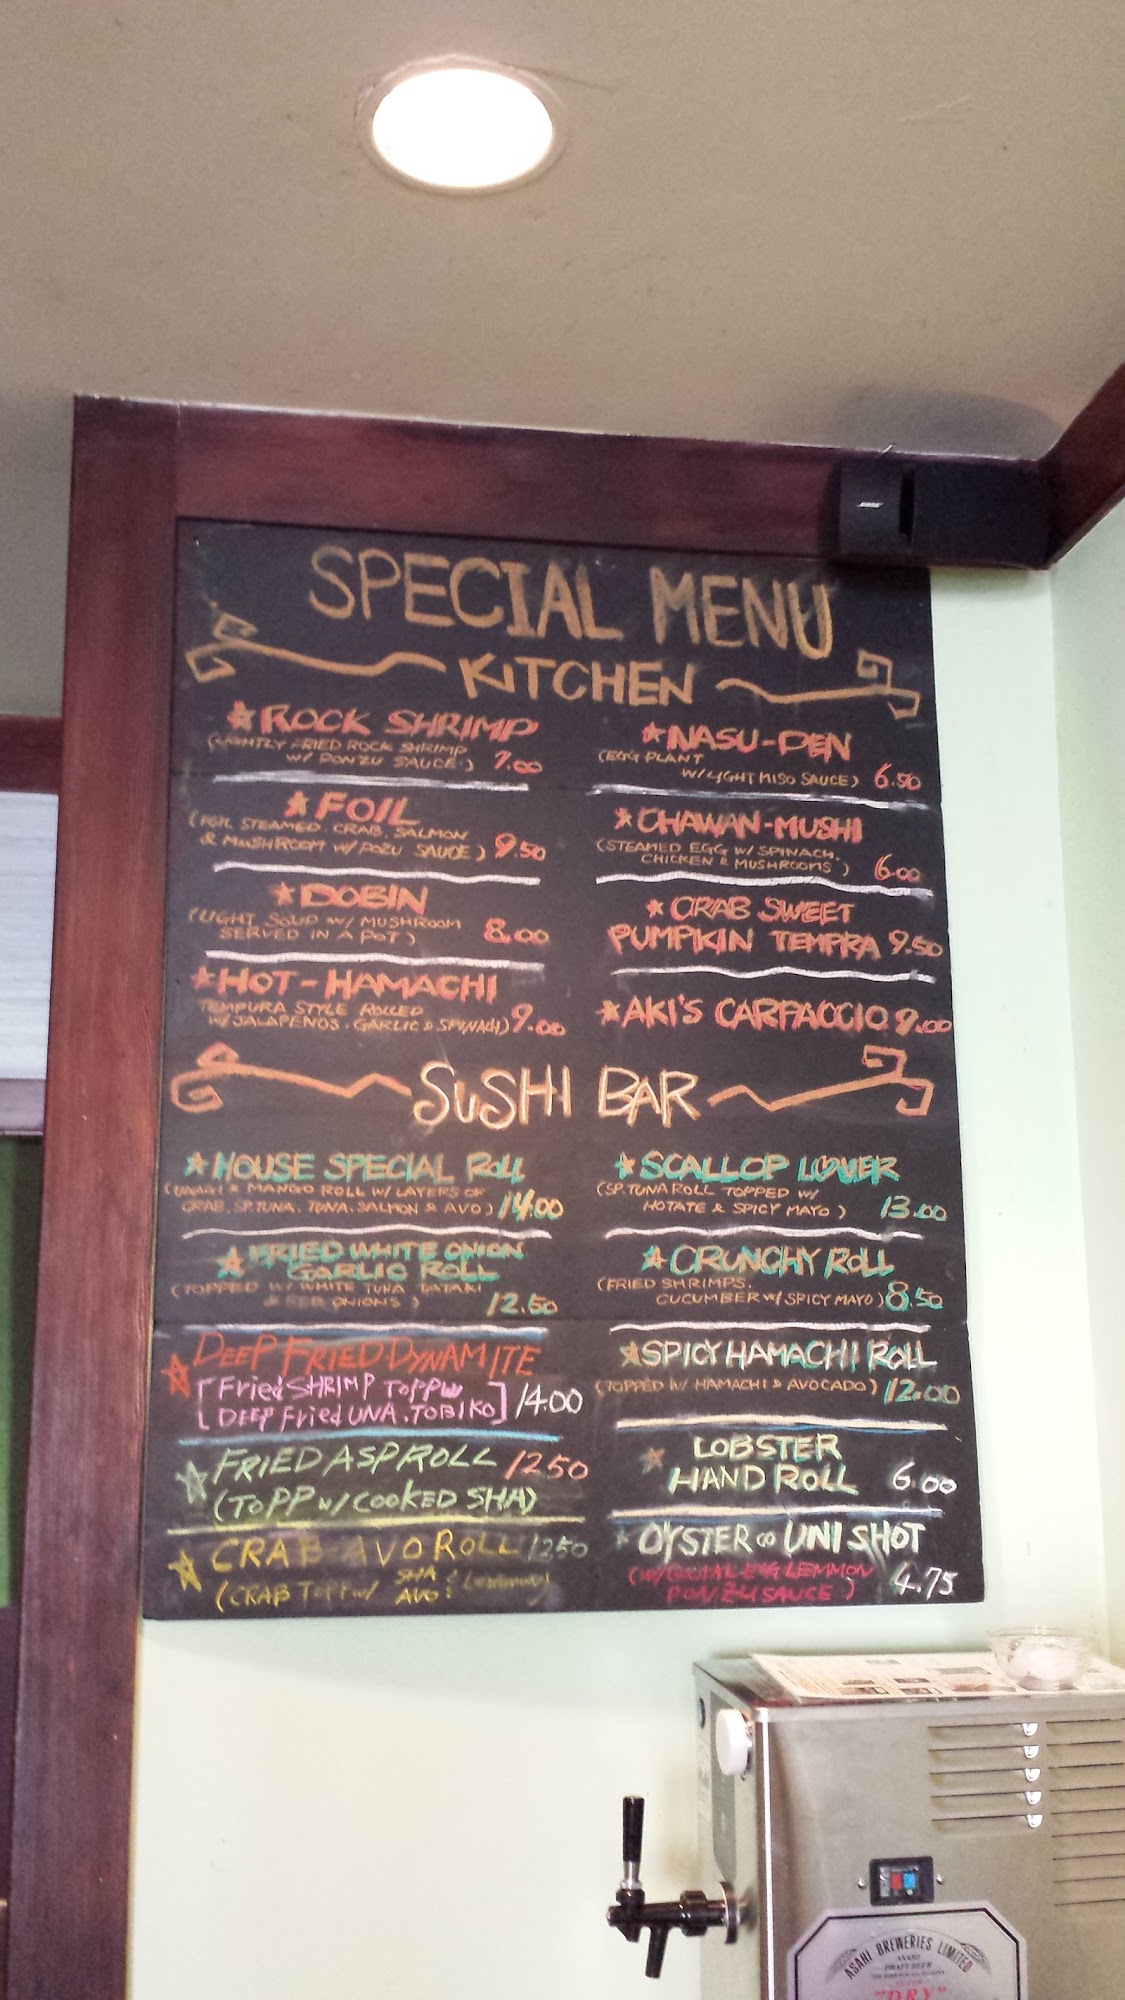 BOSE
SPECIAL MENU
KITCHEN
ROCK SHRIMP
(LIGHTLY FRIED ROCK SHRIMP
W/ PONZU SAUCE) 7.00
FOIL
(FOIL STEAMED. CRAB. SALMON
& MUSHROOM W/ POZU SAUCE) 9.50
DOBIN
(LIGHT SOUP W/ MUSHROOM
SERVED IN A POT) 8.00
HOT-HAMACHI
TEMPURA STYLE ROLLED
W/ JALAPENOS. GARLIC & SPINACH) 9.00
NASU-DEN
(EGG PLANT
W/ LIGHT MISO SAUCE) 6.50
CHAWAN-MUSHI
(STEAMED EGG W/ SPINACH.
CHICKEN & MUSHROOMS) 6.00
CRAB SWEET
PUMPKIN TEMPRA 9.50
AKI'S CARPACCIO 9.00
SUSHI BAR
HOUSE SPECIAL ROLL
(UNAGI & MANGO ROLL W/ LAYERS OF
CRAB. SP.TUNA. TUNA. SALMON & AVO) 14.00
FRIED WHITE ONION
GARLIC ROLL
(TOPPED W/ WHITE TUNA TATAKI
& RED ONIONS) 12.50
DEEP FRIED DYNAMITE
[Fried SHRIMP TOPP W/
DEEP Fried UNA. TOBIKO] 14.00
FRIED ASP ROLL 12.50
(TOPP W/ COOKED SHA)
CRAB AVO ROLL 12.50
(CRAB TOPP W/ SHA & Lemmon)
AVO
SCALLOP LOVER
(SP.TUNA ROLL TOPPED W/
HOTATE & SPICY MAYO) 13.00
CRUNCHY ROLL
(FRIED SHRIMPS.
CUCUMBER W/ SPICY MAYO) 8.50
SPICY HAMACHI ROLL
(TOPPED W/ HAMACHI & AVOCADO) 12.00
LOBSTER
HAND ROLL 6.00
OYSTER or UNI SHOT
(W/ QUAIL EGG LEMMON
PONZU SAUCE) 4.75
ASAHI BREWERIES LIMITED
ASAHI
DRAFT BEER
"DRY"